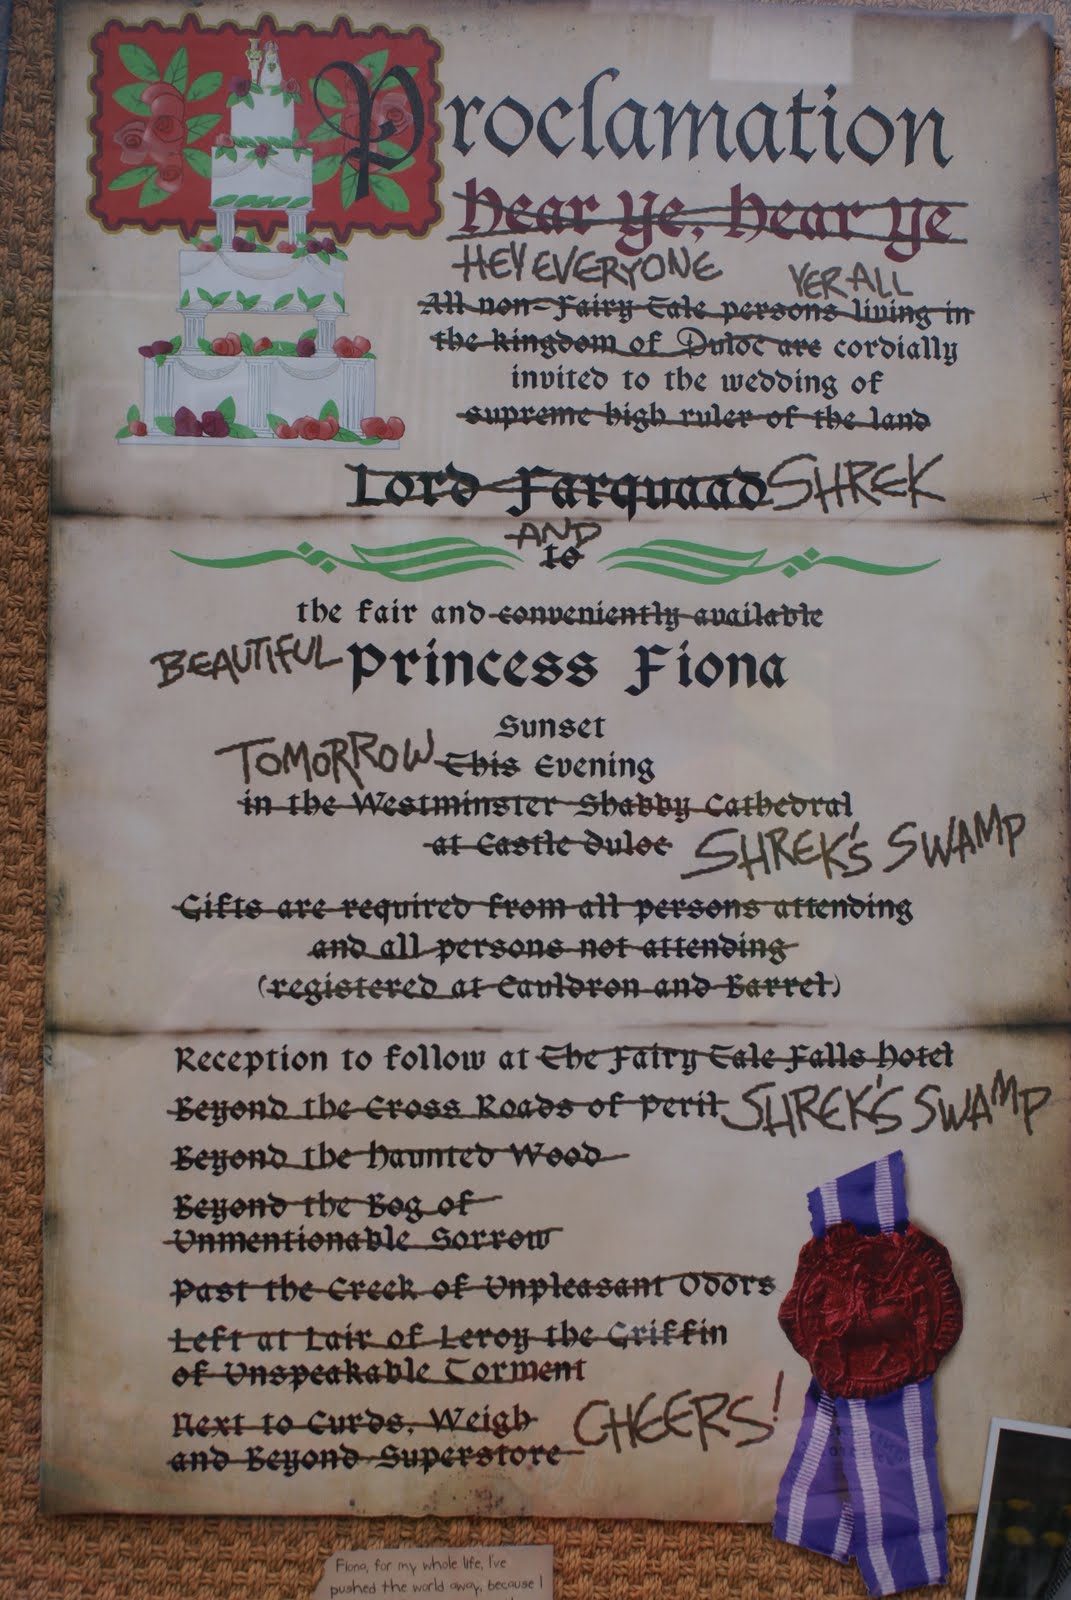 Proclamation
Hear Ye, Hear Ye
HEY EVERYONE YER ALL
All non-Fairy Tale persons living in
the kingdom of Duloc are cordially
invited to the wedding of
supreme high ruler of the land
Lord Farquaad SHREK
AND
to
the fair and conveniently available
BEAUTIFUL Princess Fiona
Sunset
TOMORROW This Evening
in the Westminster Shabby Cathedral
at Castle Duloc SHREK'S SWAMP
Gifts are required from all persons attending
and all persons not attending
(registered at Cauldron and Barrel)
Reception to follow at The Fairy Tale Falls Hotel
Beyond the Cross Roads of Peril SHREK'S SWAMP
Beyond the Haunted Wood
Beyond the Bog of
Unmentionable Sorrow
Past the Creek of Unpleasant Odors
Left at Lair of Leroy the Griffin
of Unspeakable Torment
Next to Curds, Weigh
and Beyond Superstore CHEERS!
Fiona, for my whole life, I've
pushed the world away, because I